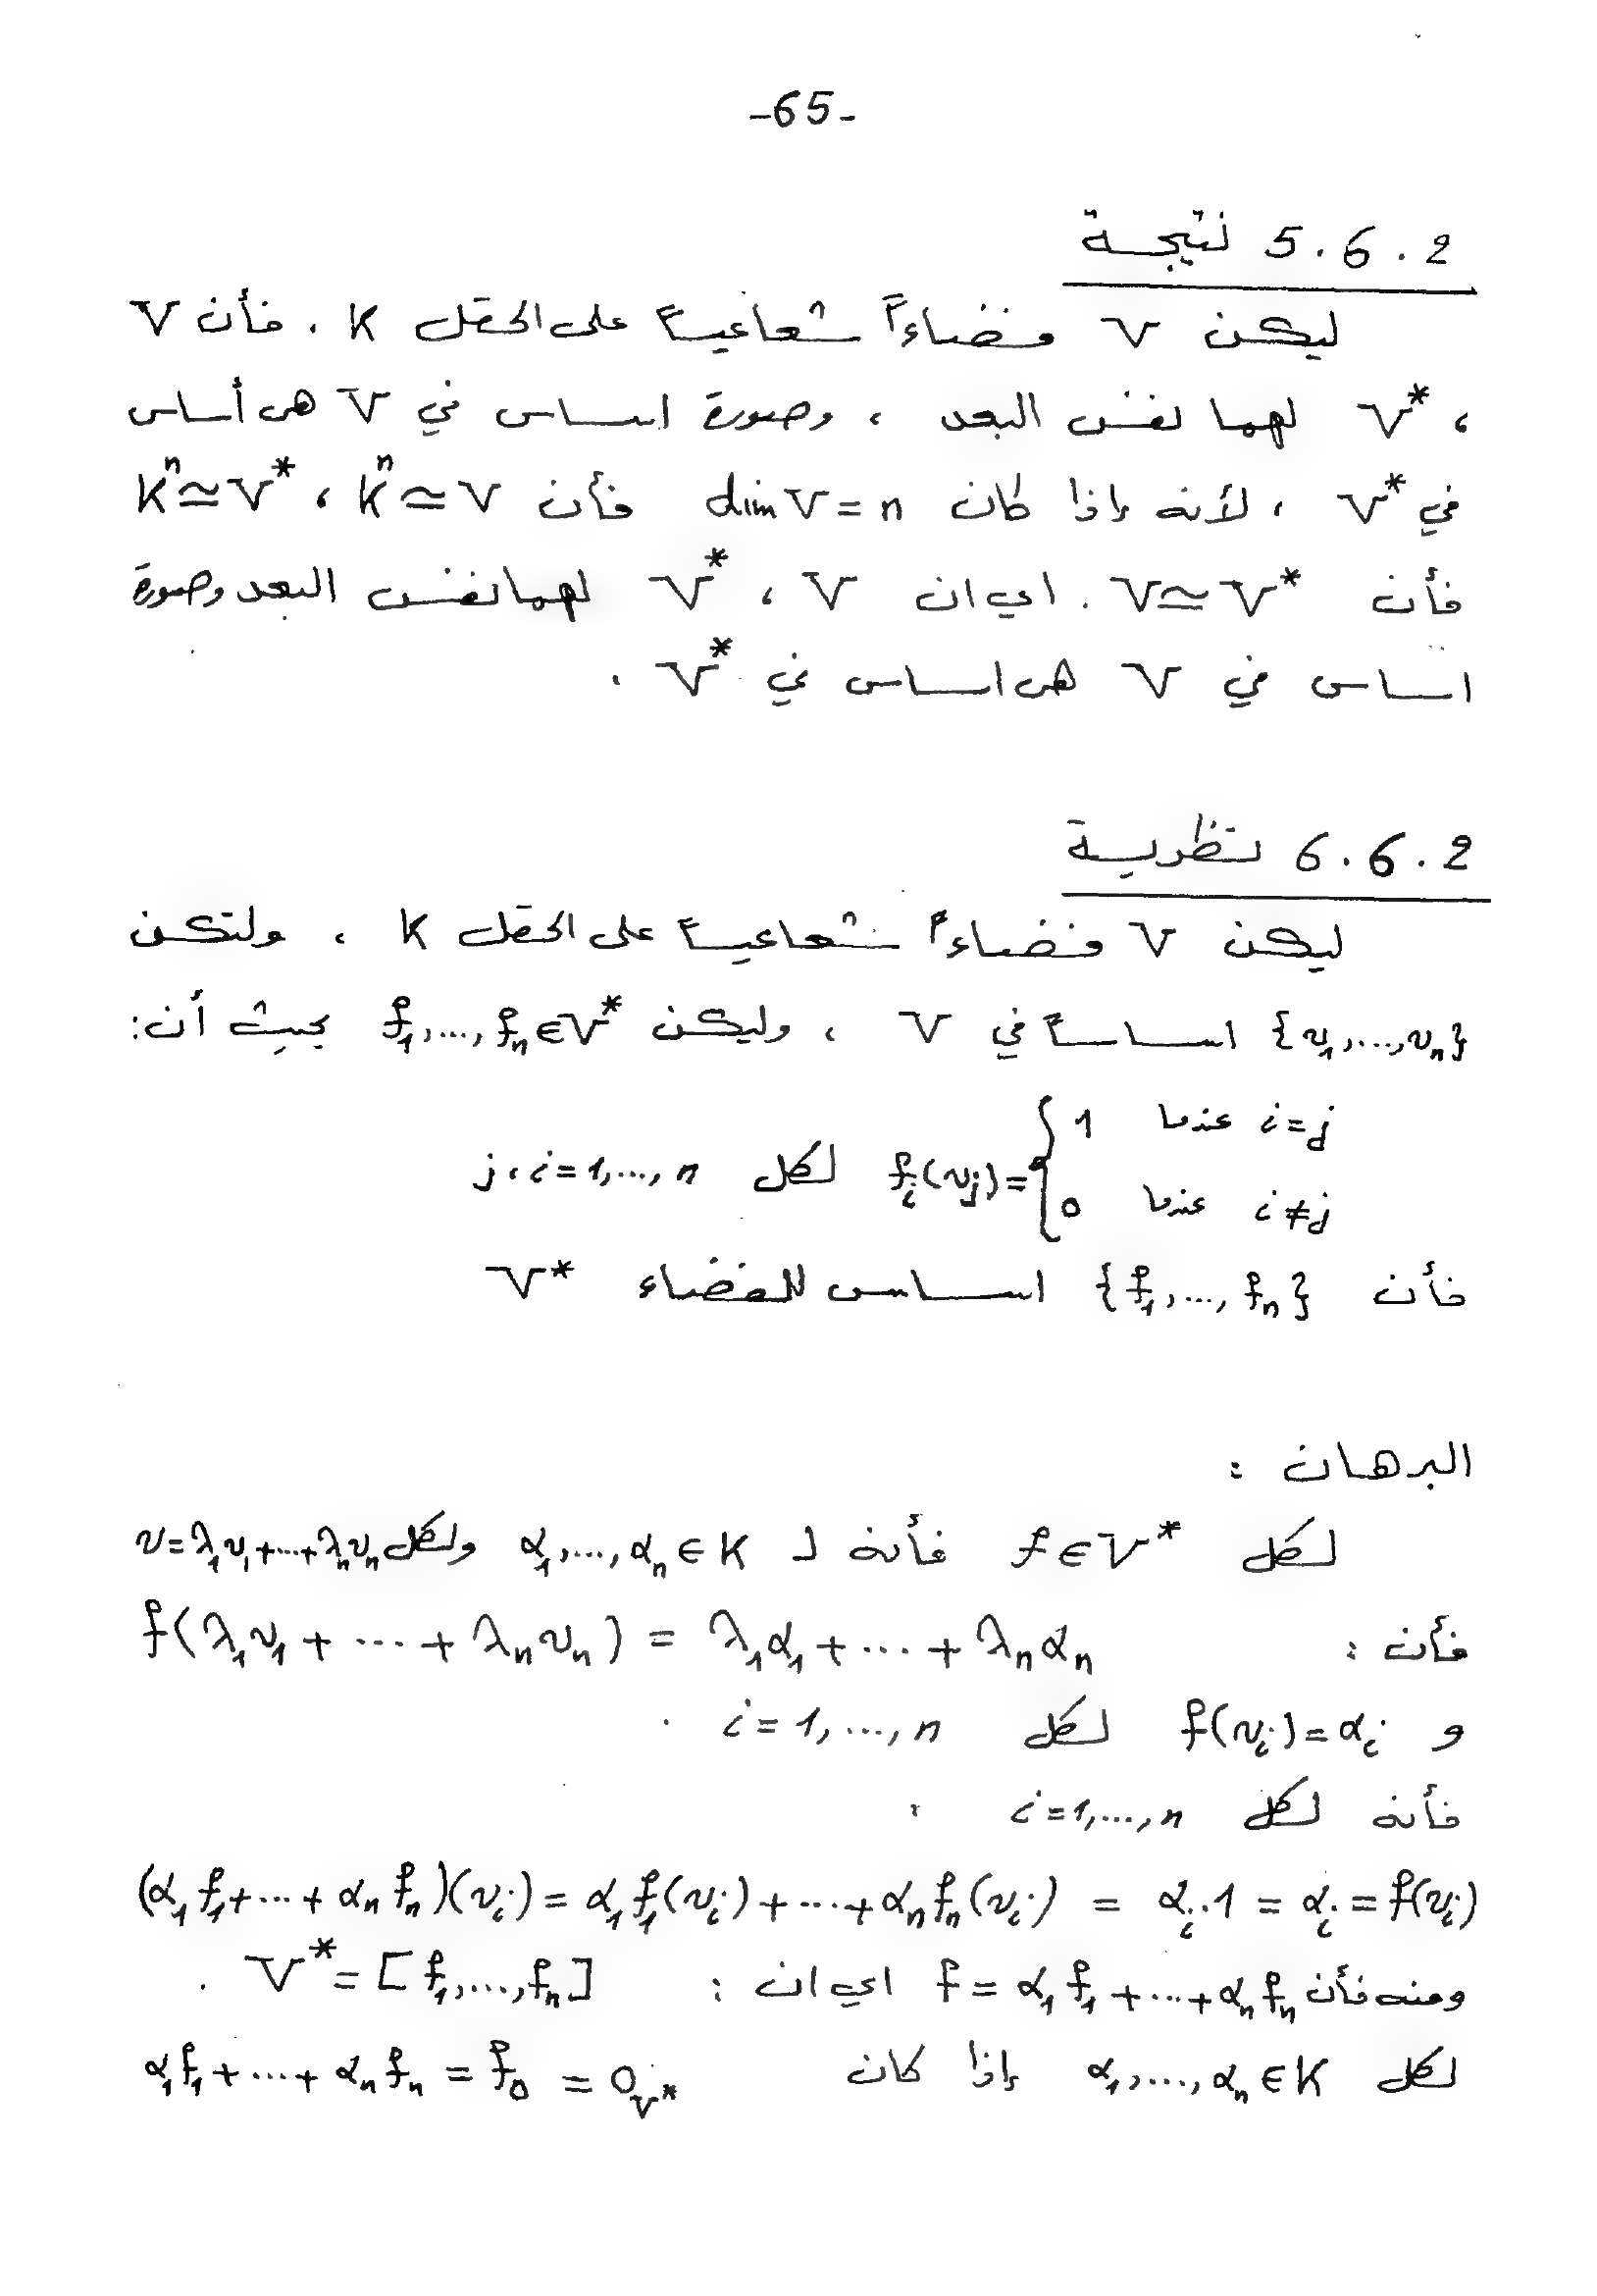 -65-
5.6.2 نتيجة
ليكن V فضاءاً شعاعياً على الحقل K . فأن V
، V* لهما نفس البعد ، وصورة اساس في V هى أساس
في V* ، لأنه إذا كان dim V = n فأن Kⁿ ≃ V ، Kⁿ ≃ V*
فأن V ≃ V* . اي ان V ، V* لهما نفس البعد وصورة
اساس في V هى اساس في V* .
6.6.2 نظرية
ليكن V فضاءاً شعاعياً على الحقل K ، ولتكن
{v₁,...,vₙ} اساساً في V ، وليكن f₁,...,fₙ ∈ V* بحيث أن:
fᵢ(vⱼ) = { 1 عندما i=j
0 عندما i≠j
لكل j ، i = 1,..., n
فأن {f₁,..., fₙ} اساس للفضاء V*
البرهان :
لكل f ∈ V* فأنه لـ α₁,..., αₙ ∈ K ولكل v = λ₁v₁+...+λₙvₙ
فأن : f(λ₁v₁ + ... + λₙvₙ) = λ₁α₁ + ... + λₙαₙ
و f(vᵢ) = αᵢ لكل i = 1, ..., n .
فأنه لكل i = 1,..., n ،
(α₁f₁ + ... + αₙfₙ)(vᵢ) = α₁f₁(vᵢ) + ... + αₙfₙ(vᵢ) = αᵢ.1 = αᵢ = f(vᵢ)
ومنه فأن f = α₁f₁ + ... + αₙfₙ اي ان : V* = [f₁,..., fₙ] .
لكل α₁,..., αₙ ∈ K إذا كان α₁f₁ + ... + αₙfₙ = f₀ = 0_V*